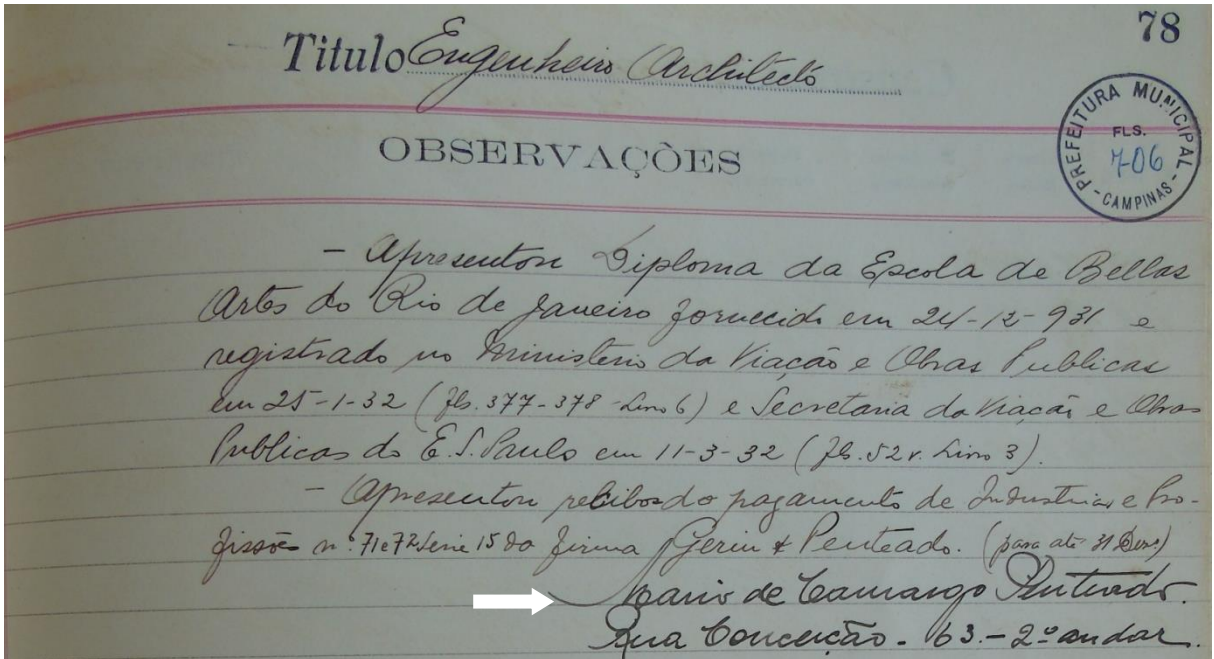 78
Titulo Engenheiro Architecto
OBSERVAÇÕES
PREFEITURA MUNICIPAL
FLS.
706
- CAMPINAS -
- Apresentou Diploma da Escola de Bellas
Artes do Rio de Janeiro fornecido em 24-12-931 e
registrado no Ministerio da Viação e Obras Publicas
em 25-1-32 (fls. 377-378 - Livro 6) e Secretaria da Viação e Obras
Publicas do E. S. Paulo em 11-3-32 (fls. 52 v. Livro 3).
- Apresentou recibos do pagamento de Industrias e Pro-
fissões nº 71 e 72 Serie 15 da firma Gerin & Penteado. (para até 31 Dez.)
Mario de Camargo Penteado.
Rua Conceição - 63. - 2º andar.